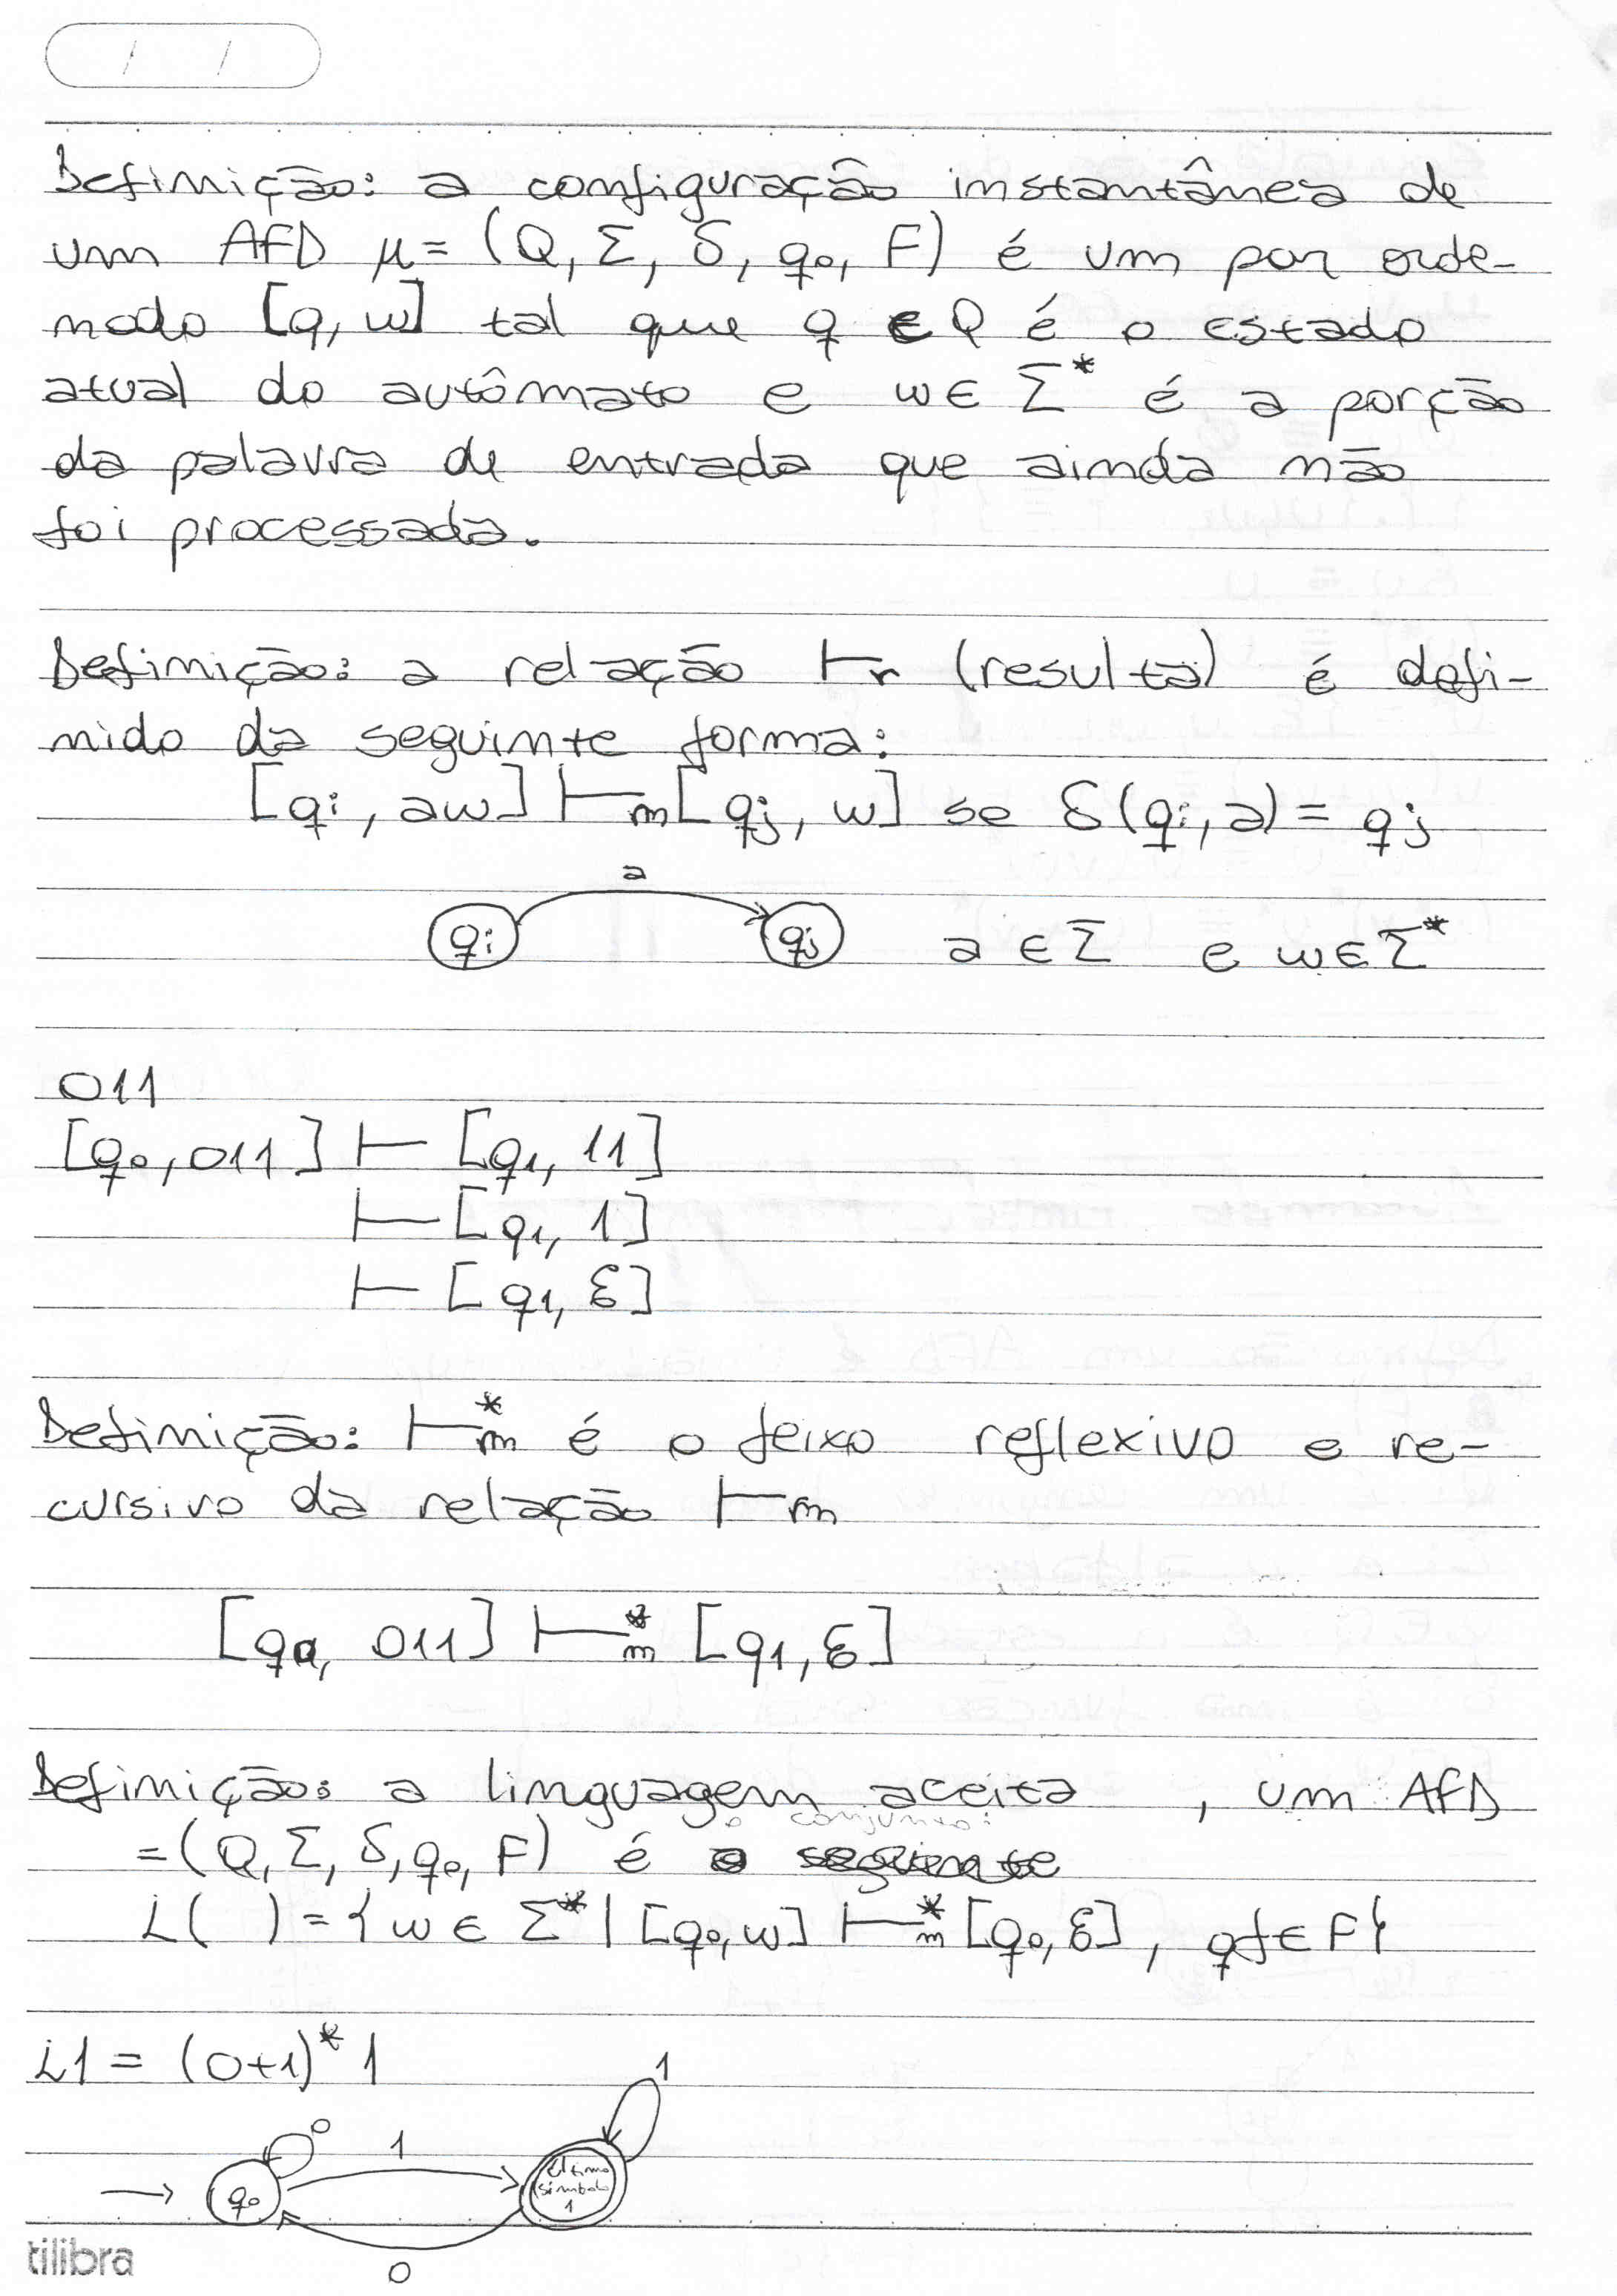 / /
Definição: a configuração instantânea de
um AFD μ = (Q, Σ, δ, q0, F) é um par orde-
nado [q, w] tal que q ∈ Q é o estado
atual do autômato e w ∈ Σ* é a porção
da palavra de entrada que ainda não
foi processada.
Definição: a relação ⊢r (resulta) é defi-
nido da seguinte forma:
[qi, aw] ⊢m [qj, w] se δ(qi, a) = qj
a
qi qj a ∈ Σ e w ∈ Σ*
011
[q0, 011] ⊢ [q1, 11]
⊢ [q1, 1]
⊢ [q1, ε]
Definição: ⊢*m é o feixo reflexivo e re-
cursivo da relação ⊢m
[q0, 011] ⊢*m [q1, ε]
Definição: a linguagem aceita , um AFD
o conjunto:
= (Q, Σ, δ, q0, F) é
L( ) = { w ∈ Σ* | [q0, w] ⊢*m [q0, ε], qf ∈ F }
L1 = (0+1)* 1
1
0
1
q0 Último
símbolo
1
0
tilibra